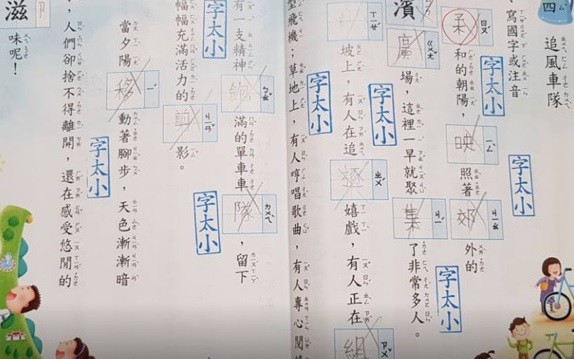 四 追風車隊
寫國字或注音
柔和的朝陽,映照著郊外的
廣場,這裡一早就聚集了非常多人。
濱
坡上,有人在追逐嬉戲,有人正在組
型飛機;草地上,有人哼唱歌曲,有人專心閱
有一支精神滿的單車車隊,留下
幅幅充滿活力的剪影。
當夕陽移動著腳步,天色漸漸暗
,人們卻捨不得離開,還在感受悠閒的
滋
味呢!
字太小
字太小
字太小
字太小
字太小
字太小
字太小
字太小